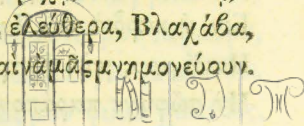 ἐλεύθερα, Βλαχάβα,
αινάμᾶςμνημονεύουν.